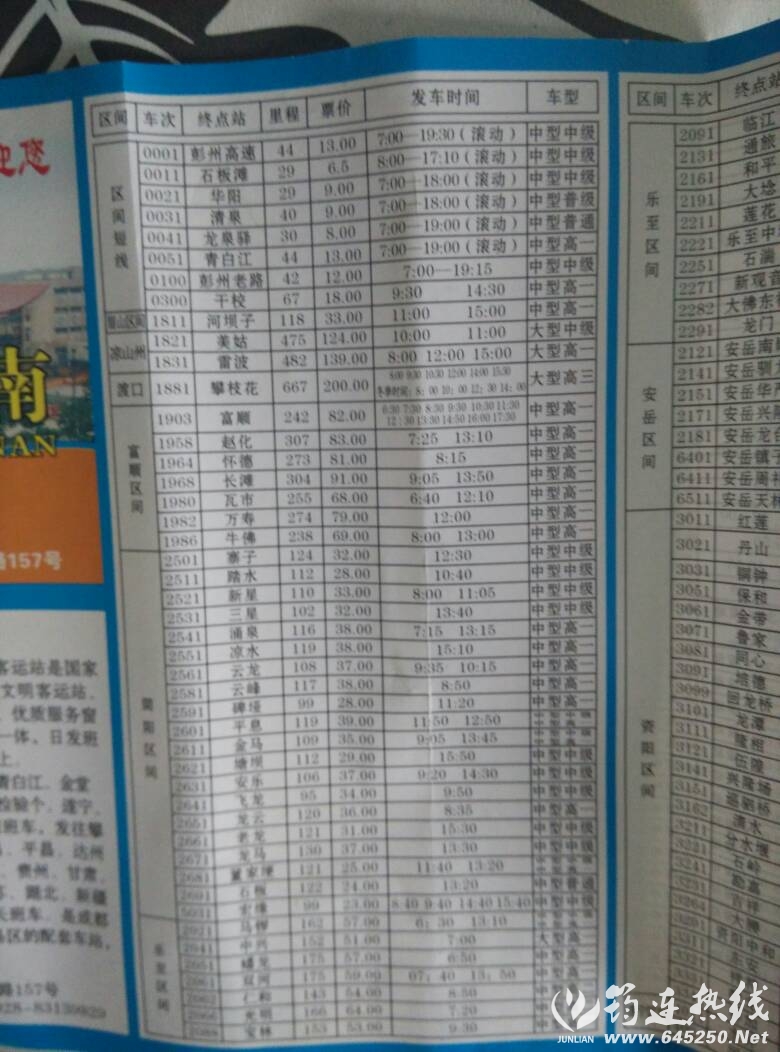 迎您
南
NAN
路157号
客运站是国家
文明客运站、
、优质服务窗
一体、日发班
上.
青白江、金堂
、平昌、达州
、贵州、甘肃、
、湖北、新疆
长班车，是成都
区的配套车站,
路157号
028-83139929
区间 车次 终点站 里程 票价 发车时间 车型
区间短线
0001 彭州高速 44 13.00 7:00—19:30（滚动） 中型中级
0011 石板滩 29 6.5 8:00—17:10（滚动） 中型中级
0021 华阳 29 9.00 7:00—18:00（滚动） 中型中级
0031 清泉 40 9.00 7:00—18:00（滚动） 中型普级
0041 龙泉驿 30 8.00 7:00—19:00（滚动） 中型普通
0051 青白江 44 13.00 7:00—19:00（滚动） 中型高一
0100 彭州老路 42 12.00 7:00—19:15 中型中级
0300 干校 67 18.00 9:30 14:30 中型高一
眉山区间 1811 河坝子 118 33.00 11:00 15:00 中型高一
凉山州
1821 美姑 475 124.00 10:00 11:00 大型中级
1831 雷波 482 139.00 8:00 12:00 15:00 大型高一
渡口 1881 攀枝花 667 200.00 8:00 9:30 10:30 12:00 14:00 15:30 大型高三
冬季时间: 8:00 10:00 12:30 14:00
富顺区间
1903 富顺 242 82.00 6:30 7:30 8:30 9:30 10:30 11:30 中型高一
12:30 13:30 14:50 16:00 17:30
1958 赵化 307 83.00 7:25 13:10 中型高一
1964 怀德 273 81.00 8:15 中型高一
1968 长滩 304 91.00 9:05 13:50 中型高一
1980 瓦市 255 68.00 6:40 12:10 中型高一
1982 万寿 274 79.00 12:00 中型高一
1986 牛佛 238 69.00 8:00 13:00 中型高一
简阳区间
2501 寨子 124 32.00 12:30 中型中级
2511 踏水 112 28.00 10:40 中型中级
2521 新星 110 33.00 8:00 11:05 中型中级
2531 三星 102 32.00 13:40 中型中级
2541 涌泉 116 38.00 7:15 13:15 中型高一
2551 凉水 119 38.00 15:10 中型高一
2561 云龙 108 37.00 9:35 10:15 中型高一
2581 云峰 117 38.00 8:50 中型高一
2591 碑垭 99 28.00 11:20 中型高一
2601 平息 119 39.00 11:50 12:50
2611 金马 109 35.00 9:05 13:45
2621 塘坝 112 29.00 15:50 中型中级
2631 安乐 106 37.00 9:20 14:30 中型中级
2641 飞龙 95 34.00 9:50 中型中级
2651 龙云 120 36.00 8:35 中型高一
2661 老龙 121 31.00 15:30 中型中级
2671 龙马 130 37.00 13:30 中型中级
2681 董家埂 121 25.00 11:40 13:20
2691 石板 122 24.00 13:20 中型普通
99 23.00 8:40 9:40 14:40 15:40 中型中级
乐至区间
162 57.00 6:30 13:10
中兴 152 51.00 7:00 大型高一
蟠龙 175 57.00 6:50 中型高一
双河 175 59.00 07:40 13:50 中型高一
仁和 143 54.00 8:50 中型高一
光明 166 64.00 7:20 中型高一
153 53.00 9:30 中型高一
区间 车次 终点站
乐至区间
2091 临江
2131 通旅
2161 和平
2191 大埝
2211 莲花
2221 乐至中
2251 石湍
2271 新观音
2282 大佛东
2291 龙门
安岳区间
2121 安岳南
2141 安岳驯龙
2151 安岳华
2171 安岳兴
2181 安岳龙台
6401 安岳镇子
6411 安岳周礼
6511 安岳天
资阳区间
3011 红莲
3021 丹山
3031 铜钟
3051 保和
3061 金带
3071 鲁家
3081 同心
3091 培德
3099 回龙桥
3101 龙潭
3111
3121 伍隍
3141 兴隆场
3151
3162 清水
3211 分水堰
3221 石岭
3241
3231 吉祥
3264
3291 资阳中和
3311 东
筠连热线
JUNLIAN www.645250.Net